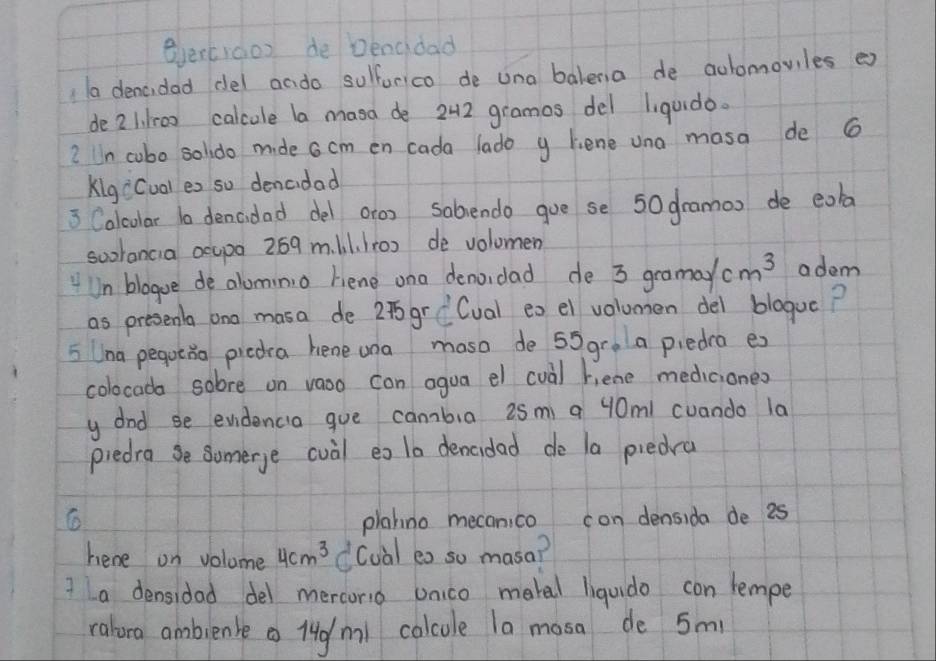 Ejercicios de Dencidad
1 la dencidad del acido sulfurico de una bateria de automoviles es
de 2 litros calcule la masa de 242 gramos del liquido.
2 Un cubo solido mide 6 cm en cada lado y tiene una masa de 6
Klg ¿Cual es su dencidad
3 Calcular la dencidad del oros sabiendo que se 50 gramos de esta
sustancia ocupa 259 mililitros de volumen
4 Un bloque de aluminio tiene una dencidad de 3 gramas/cm³ adem
as presenta una masa de 275 gr ¿Cual es el volumen del bloque?
5 Una pequeña piedra tiene una masa de 55gr. la piedra es
colocada sobre un vaso con agua el cuàl tiene mediciones
y dnd se evidencia que cambia 25 ml a 40ml cuando la
piedra se sumerje cuàl es la dencidad de la piedra
6 platino mecanico con densida de 25
tiene un volume 4cm³ ¿Cuàl es su masa?
7 La densidad del mercurio unico metal liquido con tempe
ratura ambiente a 14g/ml calcule la masa de 5ml